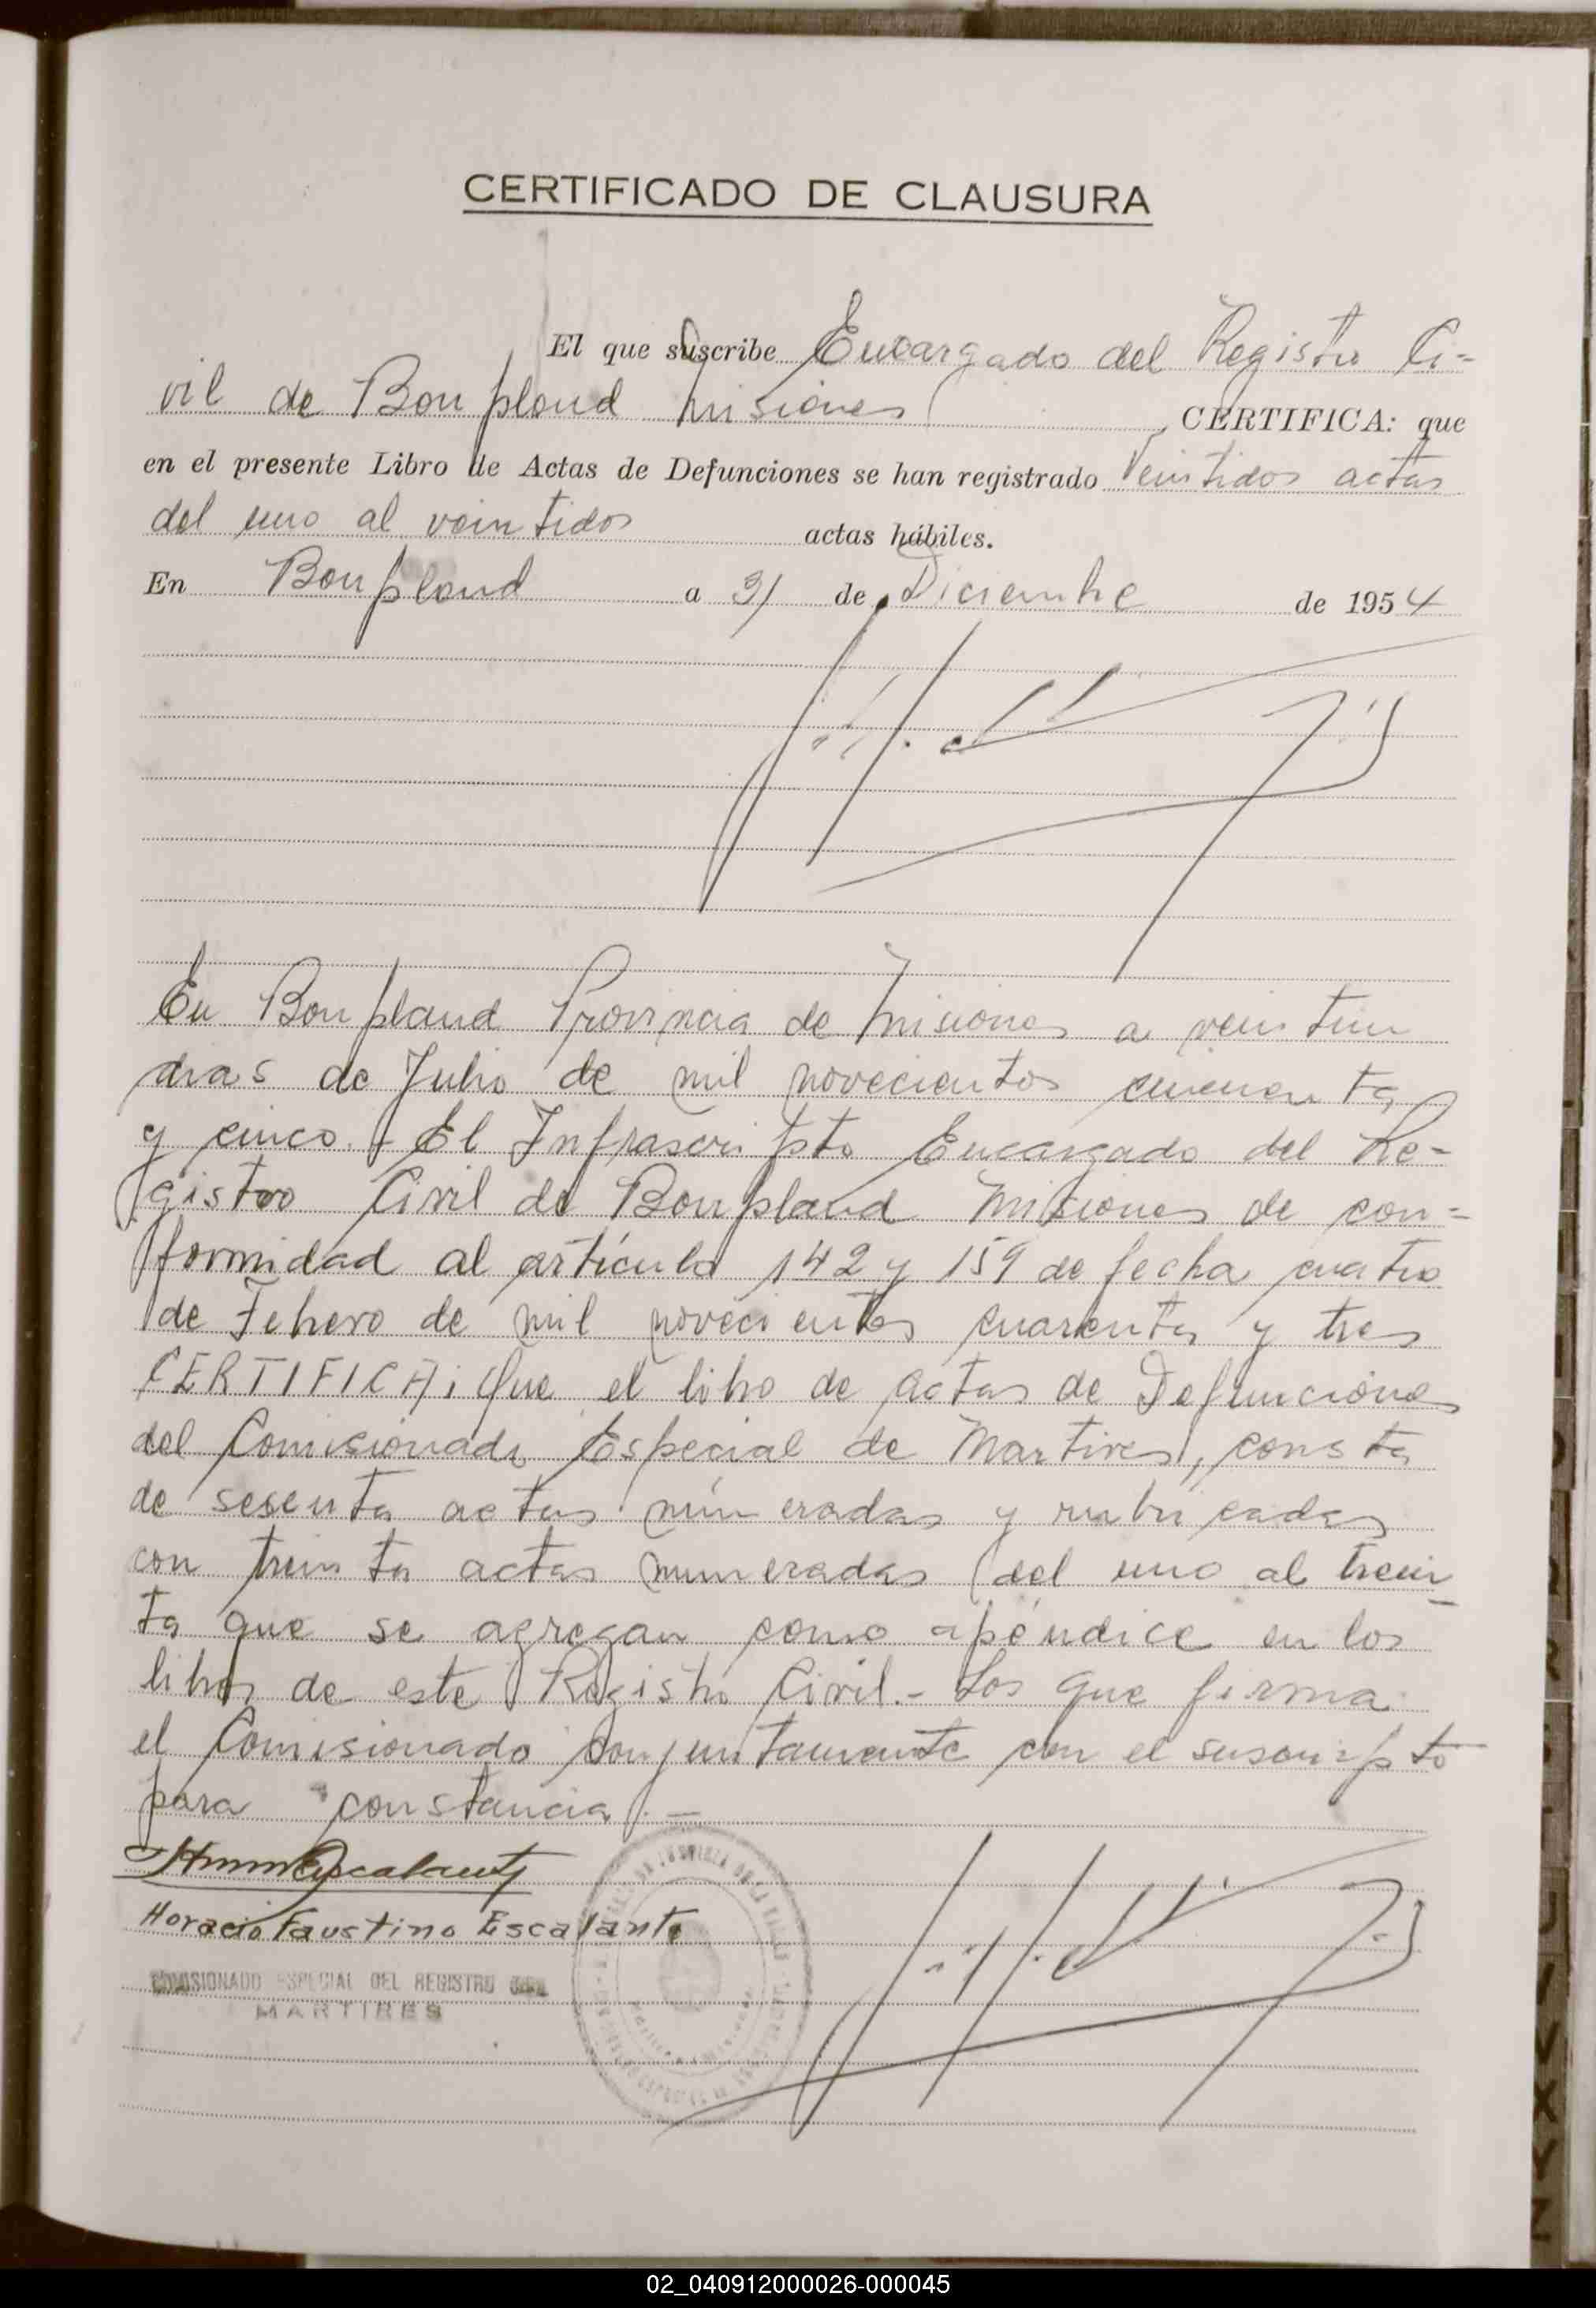 CERTIFICADO DE CLAUSURA
El que suscribe Encargado del Registro Ci-
vil de Bonpland Misiones CERTIFICA: que
en el presente Libro de Actas de Defunciones se han registrado Veintidos actas
del uno al veintidos actas hábiles.
En Bonpland a 31 de Diciembre de 1954
En Bonpland Provincia de Misiones a veintiun
dias de Julio de mil novecientos cincuenta
y cinco.- El Infrascripto Encargado del Re-
gistro Civil de Bonpland Misiones de con-
formidad al artículo 142 y 159 de fecha cuatro
de Febrero de mil novecientos cuarenta y tres
CERTIFICA: Que el libro de actas de Defunciones
del Comisionado Especial de Martires, consta
de sesenta actas númeradas y rubricadas
con treinta actas numeradas del uno al trein-
ta que se agregan como apéndice en los
libros de este Registro Civil.- Los que firma
el Comisionado conjuntamente con el suscripto
para constancia.-
Horacio Faustino Escalante
COMISIONADO ESPECIAL DEL REGISTRO
MARTIRES
02_040912000026-000045